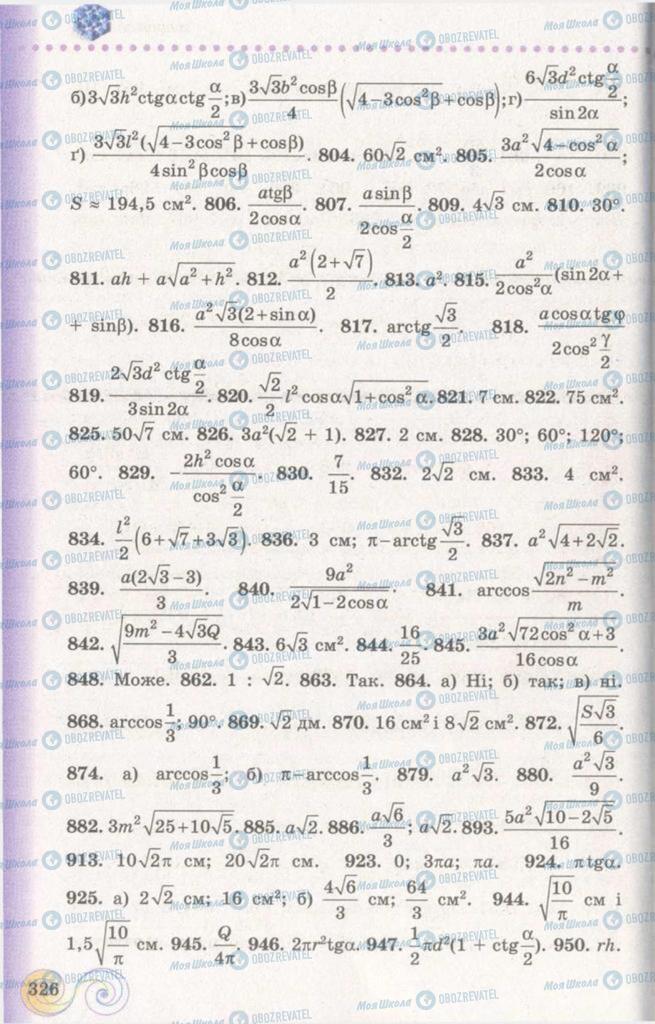 б) 3√3h²ctgα ctg α/2; в) 3√3b²cosβ/4 (√(4−3cos²β)+cosβ); г) 6√3d²ctg α/2 / sin2α;
ґ) 3√3l²(√(4−3cos²β)+cosβ) / 4sin²βcosβ. 804. 60√2 см². 805. 3a²√(4−cos²α) / 2cosα;
S ≈ 194,5 см². 806. atgβ / 2cosα. 807. asinβ / 2cos α/2. 809. 4√3 см. 810. 30°.
811. ah + a√(a²+h²). 812. a²(2+√7) / 2. 813. a². 815. a² / 2cos²α (sin2α +
+ sinβ). 816. a²√3(2+sinα) / 8cosα. 817. arctg √3/2. 818. acosαtgφ / 2cos² γ/2
819. 2√3d² ctg α/2 / 3sin2α. 820. √2/2 l² cosα√(1+cos²α). 821. 7 см. 822. 75 см².
825. 50√7 см. 826. 3a²(√2 + 1). 827. 2 см. 828. 30°; 60°; 120°;
60°. 829. −2h² cosα / cos² α/2. 830. 7/15. 832. 2√2 см. 833. 4 см².
834. l²/2 (6+√7+3√3). 836. 3 см; π−arctg √3/2. 837. a²√(4+2√2).
839. a(2√3−3) / 3. 840. 9a² / 2√(1−2cosα). 841. arccos √(2n²−m²) / m.
842. √((9m²−4√3Q) / 3). 843. 6√3 см². 844. 16/25. 845. 3a²√(72cos²α+3) / 16cosα.
848. Може. 862. 1 : √2. 863. Так. 864. а) Ні; б) так; в) ні.
868. arccos 1/3; 90°. 869. √2 дм. 870. 16 см² і 8√2 см². 872. √(S√3 / 6).
874. а) arccos 1/3; б) π−arccos 1/3. 879. a²√3. 880. a²√3 / 9.
882. 3m²√(25+10√5). 885. a√2. 886. a√6 / 3; a√2. 893. 5a²√(10−2√5) / 16.
913. 10√2π см; 20√2π см. 923. 0; 3πa; πa. 924. πtgα.
925. а) 2√2 см; 16 см²; б) 4√6/3 см; 64/3 см². 944. √(10/π) см і
1,5√(10/π) см. 945. Q/4π. 946. 2πr²tgα. 947. 1/2 πd²(1 + ctg α/2). 950. rh.
326
МояШкола OBOZREVATEL